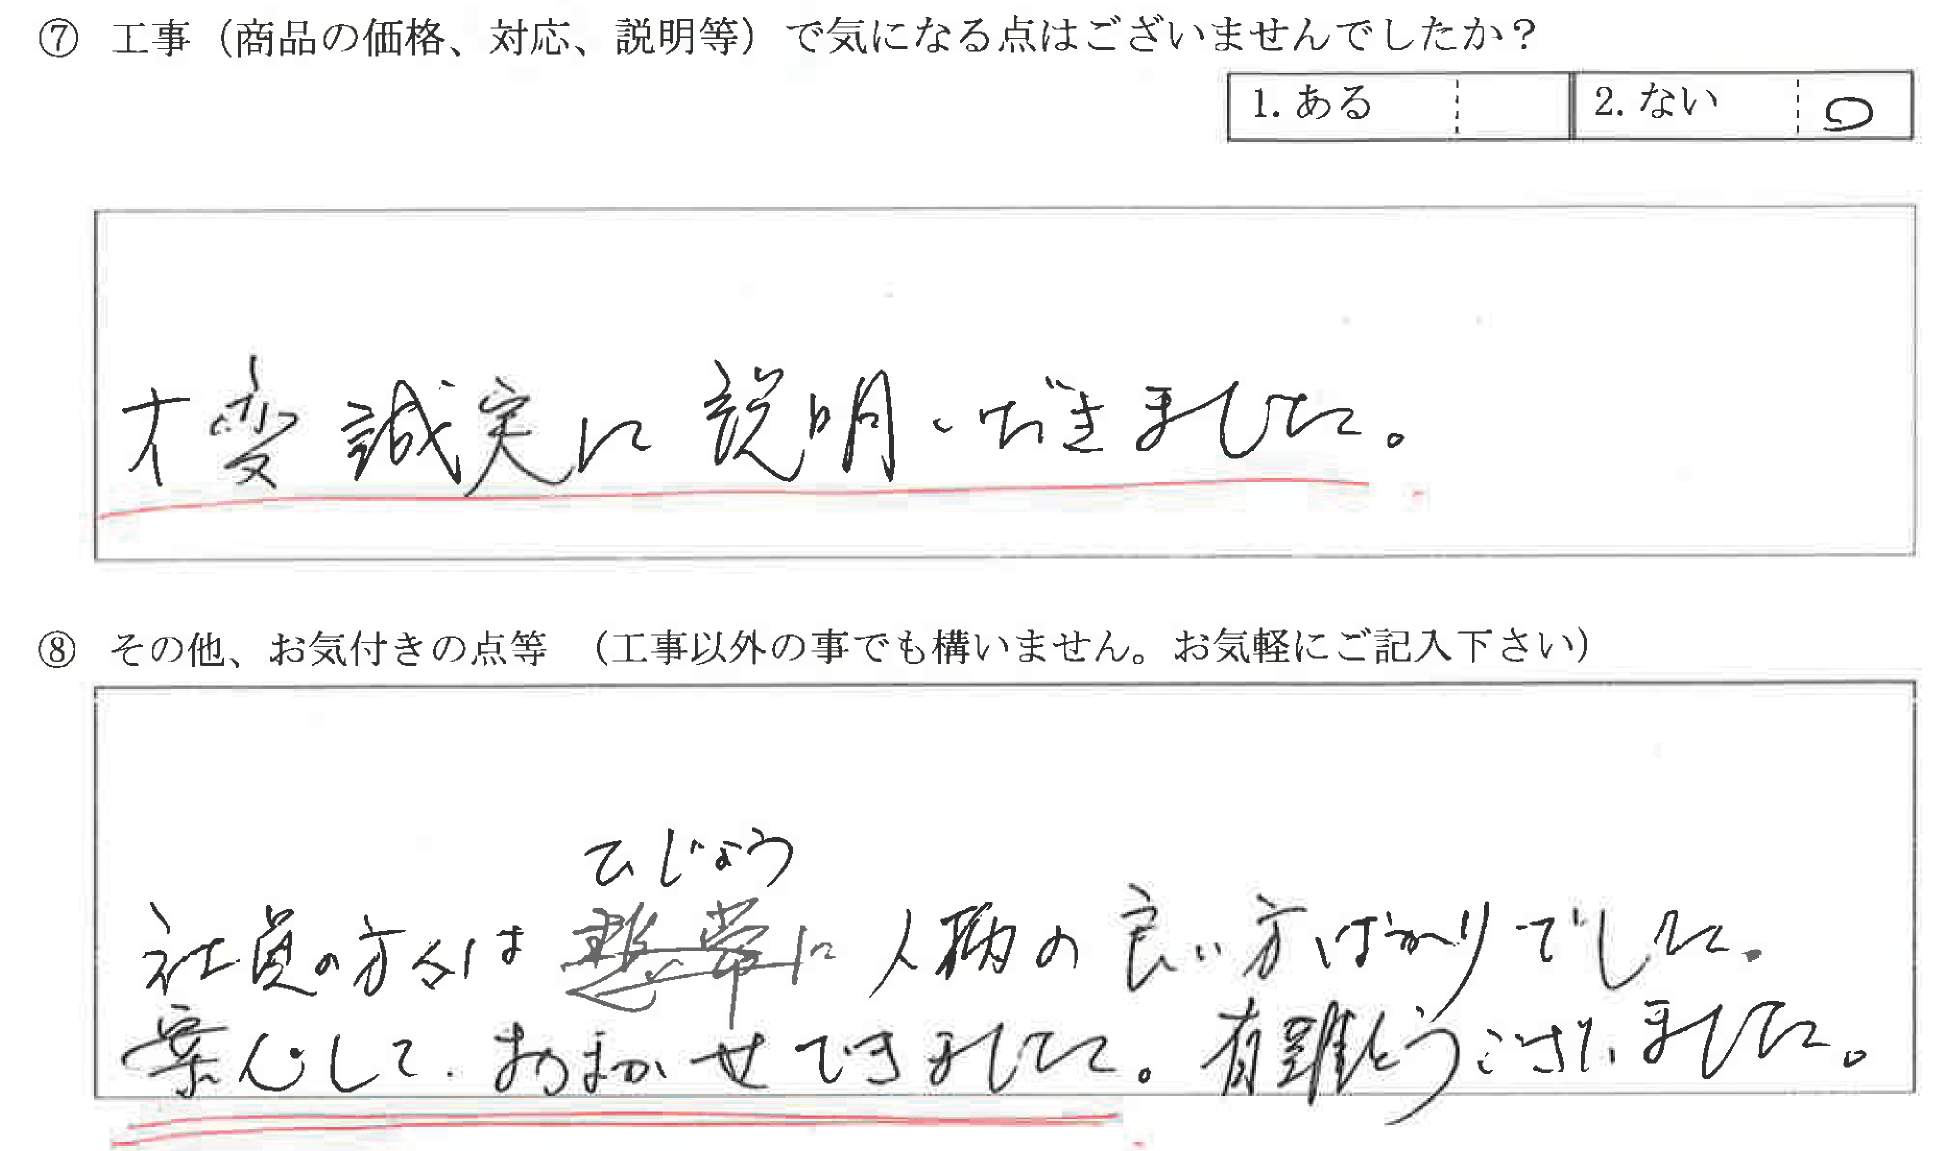 ⑦ 工事（商品の価格、対応、説明等）で気になる点はございませんでしたか？
1. ある 2. ない ○
大変誠実に説明いただきました。
⑧ その他、お気付きの点等 （工事以外の事でも構いません。お気軽にご記入下さい）
ひじょう
社員の方々は に人柄の良い方ばかりでした。
案心して、おまかせできました。有難とうございました。